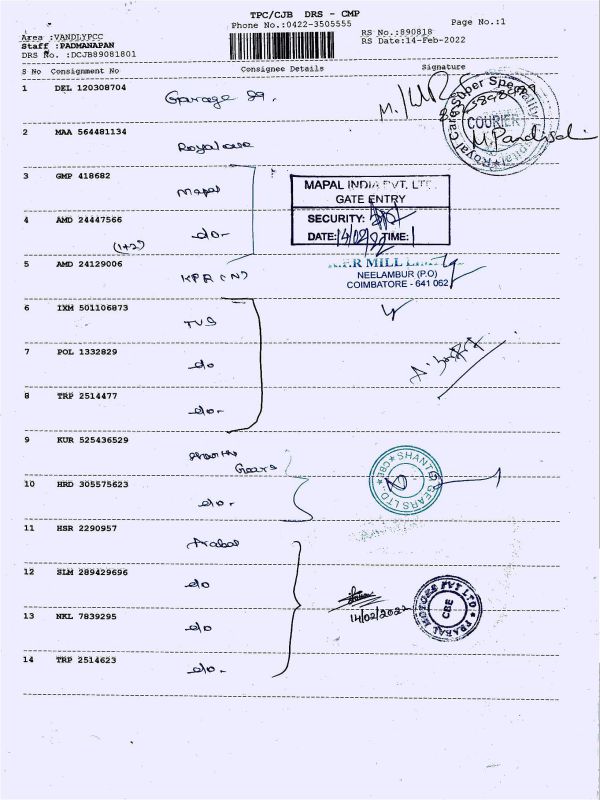 TPC/CJB DRS - CMP
Phone No.:0422-3505555
Page No.:1
Area :VANDLYPCC
Staff :PADMANAPAN
DRS No. :DCJB89081801
RS No.:890818
RS Date:14-Feb-2022
S No Consignment No Consignee Details Signature
1 DEL 120308704 Garage 89.
COURIER
2 MAA 564481134 Royalcare
3 GMP 418682 Mapal
MAPAL INDIA PVT. LTD.
GATE ENTRY
SECURITY:
DATE: 14/02/22 TIME:
4 AMD 24447566 do-
(1+2)
5 AMD 24129006 KPR (N)
K.P.R MILL LIMITED
NEELAMBUR (P.O)
COIMBATORE - 641 062
6 IXM 501106873 TVS
7 POL 1332829 do
8 TRP 2514477 do-
9 KUR 525436529 Shanthi
Gears
SHANTHI GEARS LTD. CBE
10 HRD 305575623 do-
11 HSR 2290957 Prabal
12 SLM 289429696 do
14/02/2022
PRABAL MOTORS PVT LTD
CBE
13 NKL 7839295 do
14 TRP 2514623 do-